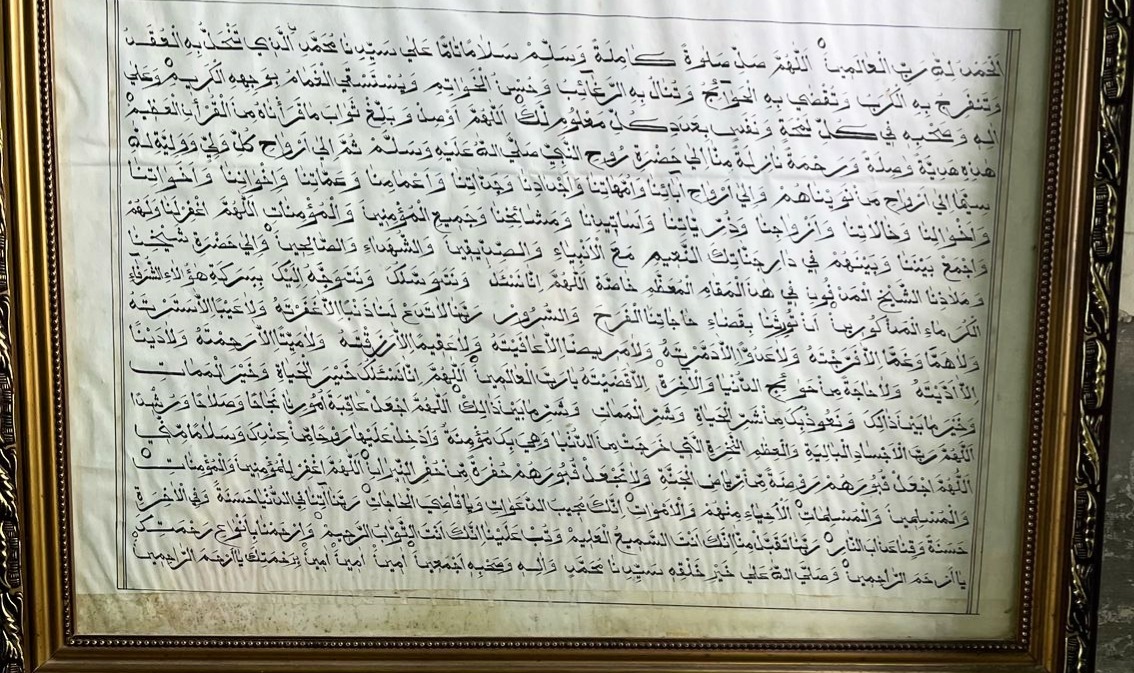 الحمد لله رب العالمين اللهم صل صلوة كاملة وسلم سلاما تاما على سيدنا محمد الذي تنحل به العقد
وتنفرج به الكرب وتقضى به الحوائج وتنال به الرغائب وحسن الخواتم ويستسقى الغمام بوجهه الكريم وعلى
اله وصحبه في كل لمحة ونفس بعدد كل معلوم لك اللهم أوصل وبلغ ثواب ما قرأناه من القرآن العظيم
هذه هدية واصلة ورحمة نازلة منا إلى حضرة روح النبي صلى الله عليه وسلم ثم إلى أرواح كل ولي وولية لله
سيما إلى أرواح من نويناهم وإلى أرواح آبائنا وأمهاتنا وأجدادنا وجداتنا وأعمامنا وعماتنا وإخواننا وأخواتنا
وأخوالنا وخالاتنا وأزواجنا وذرياتنا وأساتيذنا ومشائخنا وجميع المؤمنين والمؤمنات اللهم اغفر لنا ولهم
واجمع بيننا وبينهم في دار جناتك النعيم مع الأنبياء والصديقين والشهداء والصالحين وإلى حضرة شيخنا
وملاذنا الشيخ المدفون في هذا المقام المعظم خاصة اللهم إنا نسئلك ونتوسلك ونتوجه إليك ببركة هؤلاء الشرفاء
الكرماء المذكورين أن تورثنا بقضاء حاجاتنا الفرح والسرور ربنا لا تدع لنا ذنبا إلا غفرته ولا عيبا إلا سترته
ولا هما وغما إلا فرجته ولا عدوا إلا دمرته ولا مريضا إلا عافيته ولا عقيما إلا رزقته ولا ميتا إلا رحمته ولا دينا
إلا أديته ولا حاجة من حوائج الدنيا والآخرة إلا قضيته يا رب العالمين اللهم إنا نسئلك خير الحياة وخير الممات
وخير ما بين ذالك ونعوذ بك من شر الحياة وشر الممات وشر ما بين ذالك اللهم اجعل عاقبة أمورنا نجاحا وصلاحا ورشدا
اللهم رب الأجساد البالية والعظم النخرة التي خرجت من الدنيا وهي بك مؤمنة وأدخل عليها روحا من عندك وسلاما مني
اللهم اجعل قبورهم روضة من رياض الجنة ولا تجعل قبورهم حفرة من حفر النيران اللهم اغفر للمؤمنين والمؤمنات
والمسلمين والمسلمات الأحياء منهم والأموات إنك مجيب الدعوات ويا قاضي الحاجات ربنا آتنا في الدنيا حسنة وفي الآخرة
حسنة وقنا عذاب النار ربنا تقبل منا إنك أنت السميع العليم وتب علينا إنك أنت التواب الرحيم وارحمنا بأنواع رحمتك
يا أرحم الراحمين وصلى الله على خير خلقه سيدنا محمد واله وصحبه أجمعين امين امين امين برحمتك يا أرحم الراحمين